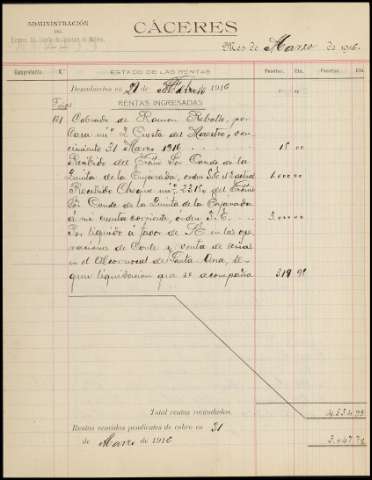 ADMINISTRACIÓN
DEL
CÁCERES
Mes de Marzo de 1916.
Comprobante. N.º ESTADO DE LAS RENTAS Pesetas. Cts. Pesetas. Cts.
Recaudación en 29 de Febrero de 1916
RENTAS INGRESADAS
Cobrado de Ramon Rebollo, por
Casa nº 2 Cuesta del Maestre, ven-
cimiento 31 Marzo 1916 15 00
Recibido del Exmo Sor Conde de la
Quinta de la Enjarada, orden S.E. 1.000 00
Recibido Cheque nº del Exmo
Sor Conde de la Quinta de la Enjarada
á mi cuenta corriente, orden S.E. 3.000 00
Por liquido á favor de S.E. en las ope-
raciones de Corte y venta de leñas
en el Alcornocal de Santa Ana, se-
gun liquidacion que se acompaña 219 98
Total rentas recaudadas. 4.234 98
Rentas vencidas pendientes de cobro en 31
de Marzo de 1916